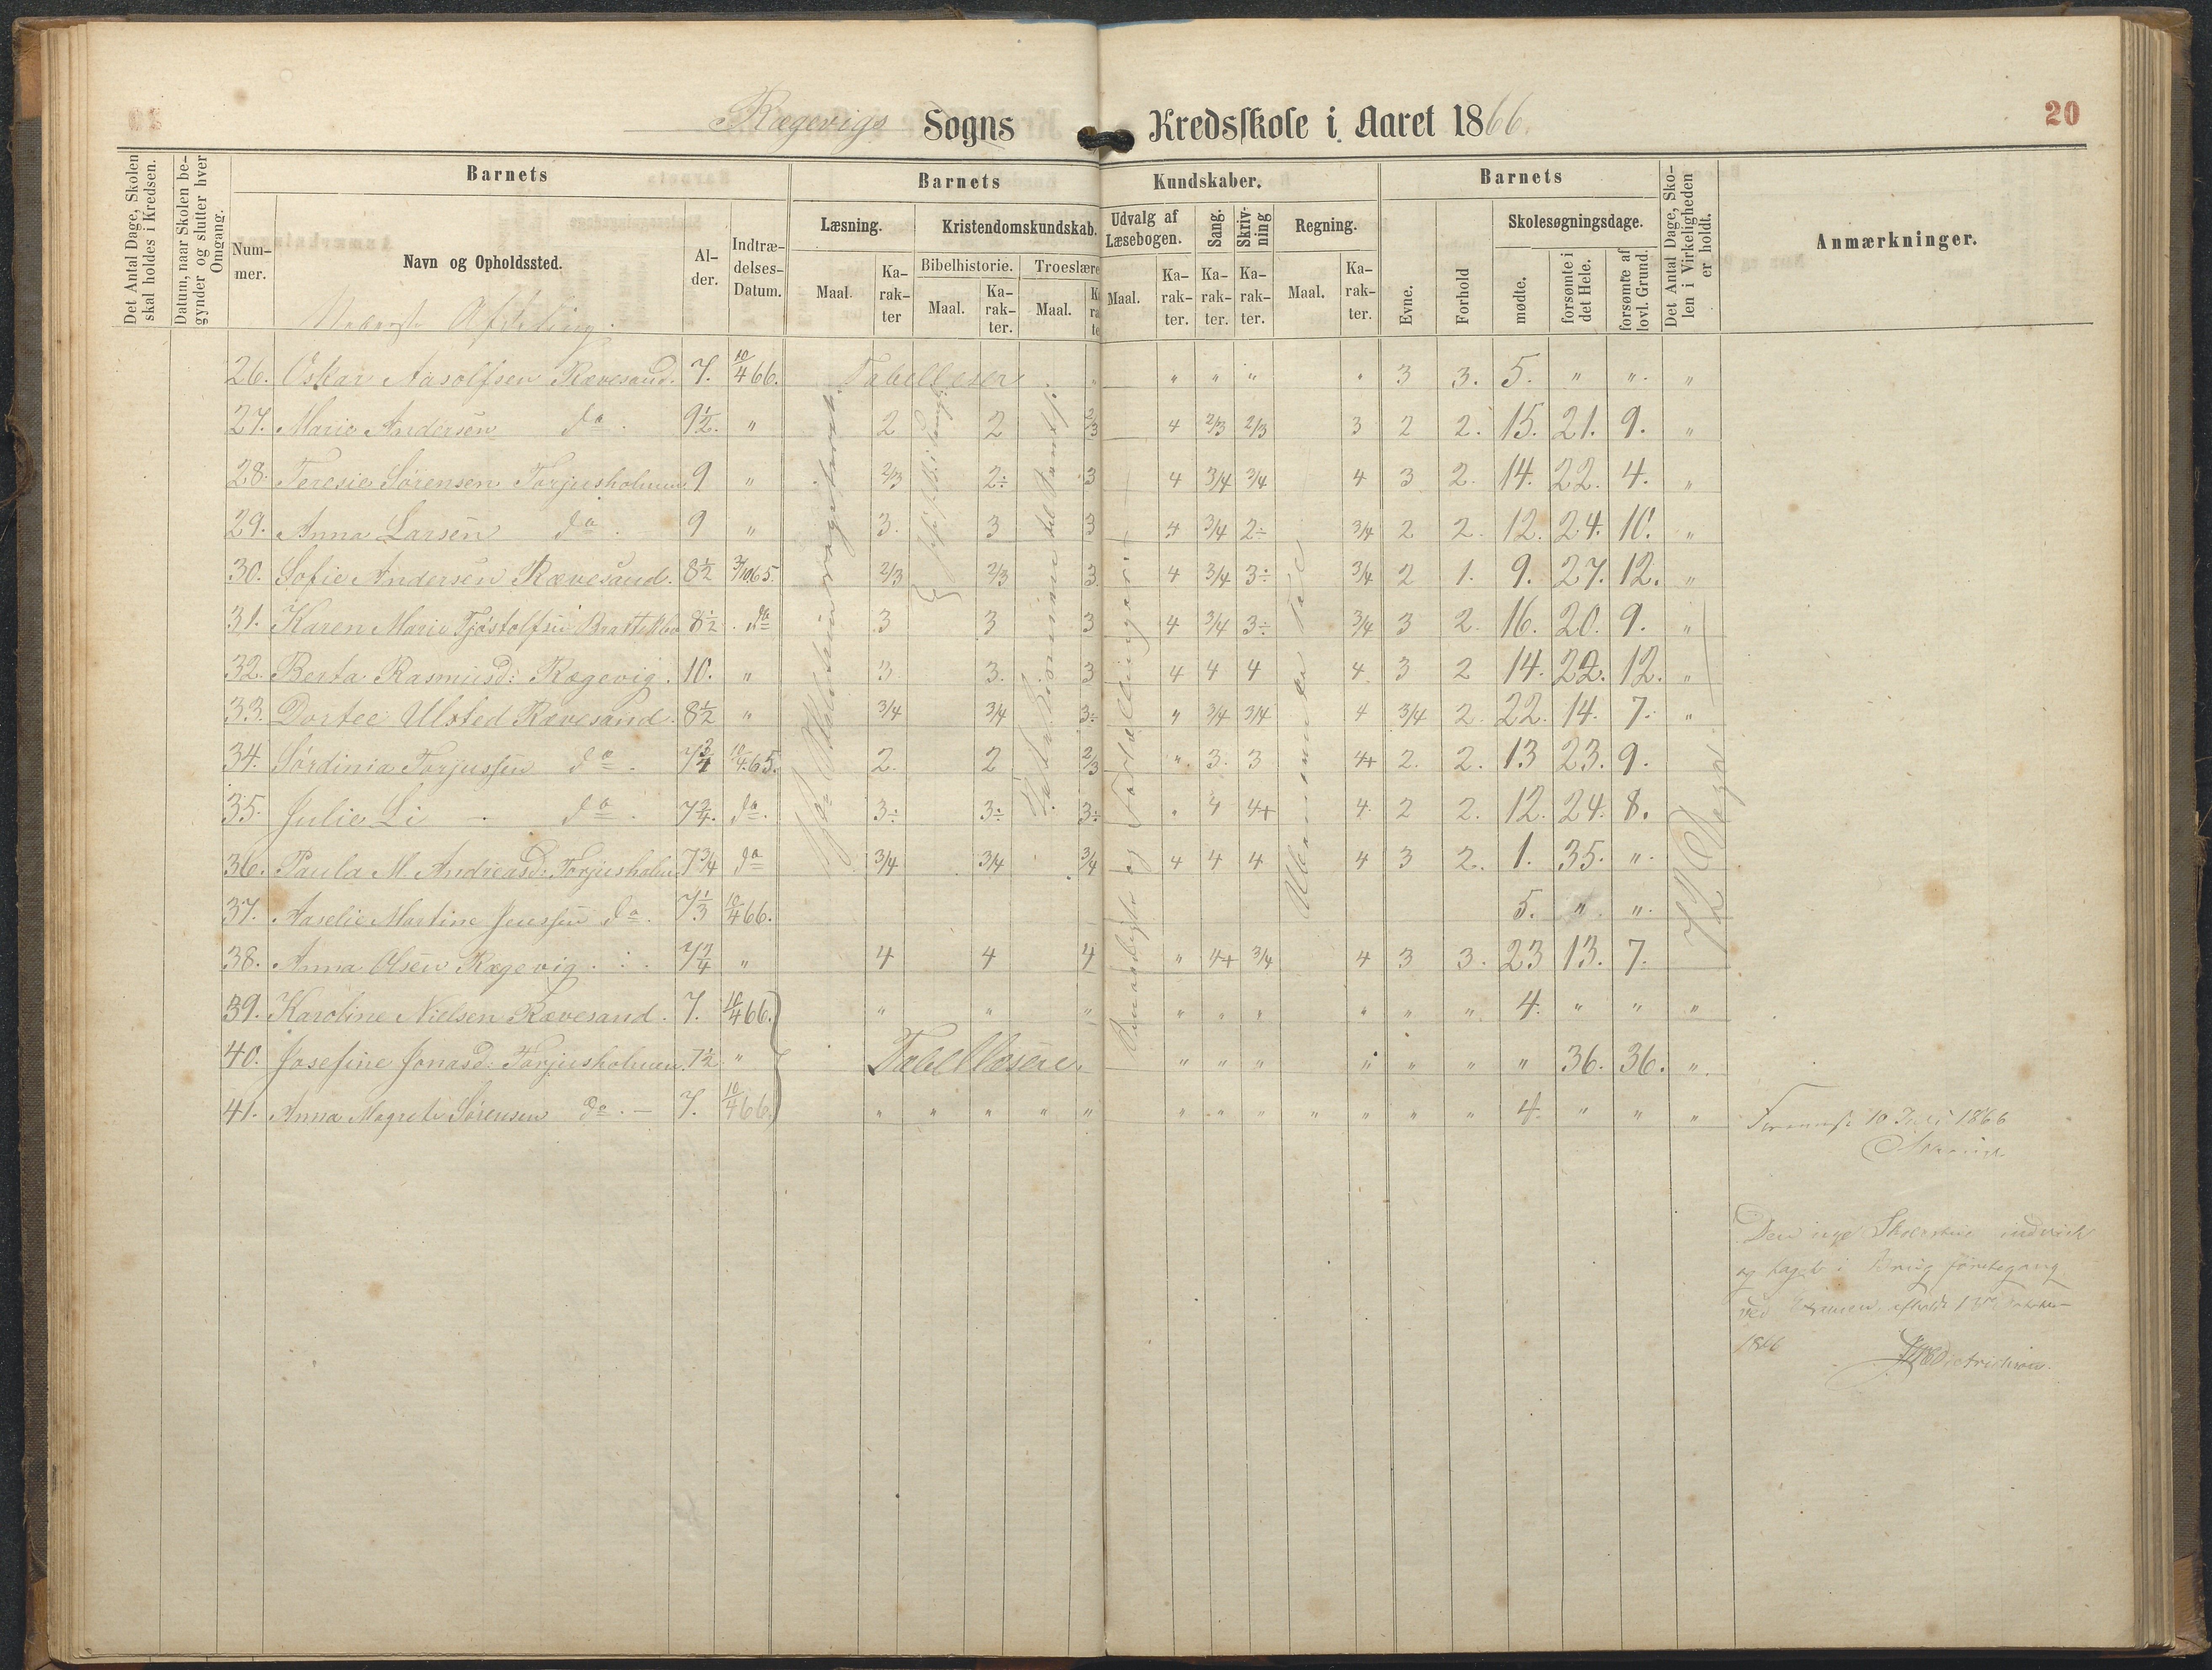 Rægevigs Sogns Kredsskole i Aaret 1866. 20
Det Antal Dage, Skolen skal holdes i Kredsen.
Datum, naar Skolen begynder og slutter hver Omgang.
Barnets
Nummer.
Navn og Opholdssted.
Alder.
Indtrædelses-Datum.
Barnets Kundskaber.
Læsning.
Maal.
Karakter
Kristendomskundskab.
Bibelhistorie.
Maal.
Karakter.
Troeslære
Maal.
Udvalg af Læsebogen.
Maal.
Karakter.
Sang.
Karakter.
Skrivning
Karakter.
Regning.
Maal.
Karakter.
Barnets
Evne.
Forhold
Skolesøgningsdage.
mødte.
forsømte i det Hele.
forsømte af lovl. Grund.
Det Antal Dage, Skolen i Virkeligheden er holdt.
Anmærkninger.
26. Oskar Aasolfsen Rævesand. 7. 10/4 66. Tabellæser . " " " " " 3 3. 5. " " "
27. Marie Andersen do. 9½. " 2 2 2/3 4 2/3 2/3 3 2 2. 15. 21. 9. "
28. Teresie Sørensen Torjusholmen 9 " 2/3 2÷ 3 4 3/4 3/4 4 3 2. 14. 22. 4. "
29. Anna Larsen do. 9 " 3. 3 3 4 3/4 2÷ 3/4 2 2. 12. 24. 10. "
30. Sofie Andersen Rævesand. 8½ 3/10 65. 2/3 2/3 3. 4 3/4 3÷ 3/4 2 1. 9. 27. 12. "
31. Karen Marie Tjøstolfsen 8½ do 3 3 3 4 3/4 3÷ 3/4 3 2. 16. 20. 9. "
32. Berta Rasmusd: Rægevig. 10. " 3. 3. 3 4 4 4 4. 3 2 14. 22. 12. "
33. Dortee Ulsted Rævesand. 8½ " 3/4 3/4 3÷ " 3/4 3/4 4 3/4 2. 22. 14. 7. "
34. Sørdinia Torjussen do. 7¾ 10/4 65. 2. 2 2/3 " 3. 3 4+ 2. 2. 13 23. 9.
35. Julie Li - do. 7¾. do. 3÷ 3÷ 3÷ " 4 4+ 4. 2 2. 12. 24. 8.
36. Paula M Andreasd: Torjusholm 7¾ do 3/4 3/4 3/4 4 4 4 4 3 2. 1. 35. "
37. Aaselie Martine Jenssen do. 7⅓ 10/4 66. 5. " "
38. Anna Olsen Rægevig. 7¾ " 4 4 4 " 4+ 3/4 4 3 3. 23 13. 7.
39. Karoline Nielsen Rævesand. 7. 10/4 66. " " " " " " " " " 4. " " "
40. Josefine Jonasd: Torjusholmen. 7½ " Tabellæsere. " " " " " " " 36. 36. "
41. Anna Magrete Sørensen do. - 7. 10/4 66. " " " " " " " " " " " " 4. " " "
72 Dage
10 Juli 1866
Den nye
og taget i Brug førstegang
ved Examen
1866